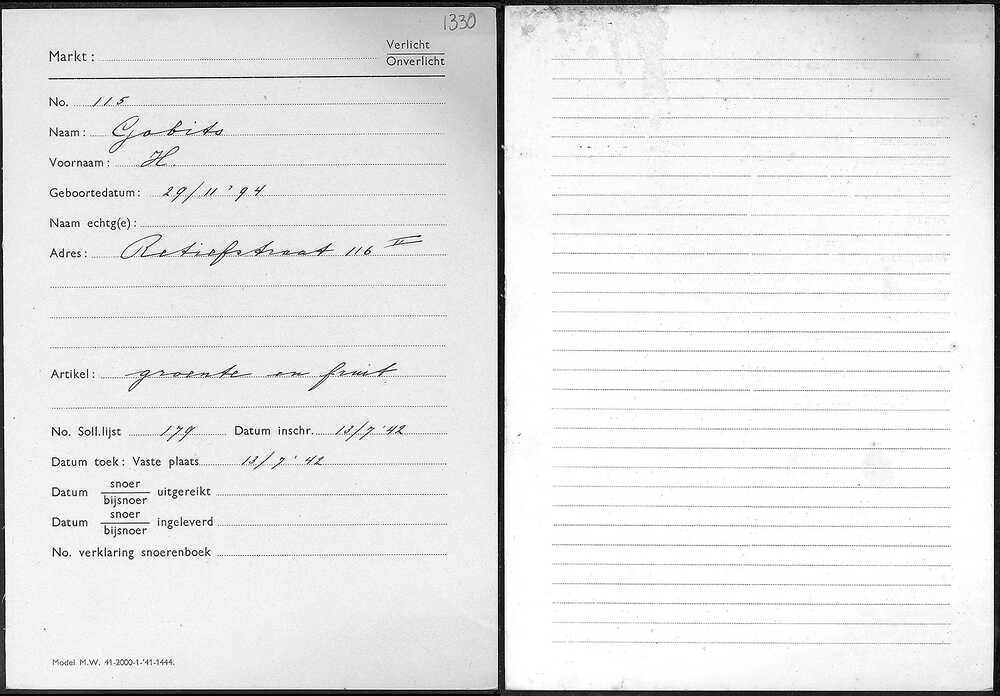 1330
Markt :
Verlicht
Onverlicht
No. 115
Naam : Gobits
Voornaam : H.
Geboortedatum : 29/11 '94
Naam echtg(e) :
Adres : Retiefstraat 116 II
Artikel : groente en fruit
No. Soll.lijst 179 Datum inschr. 13/7 '42
Datum toek : Vaste plaats 13/7 '42
Datum snoer/bijsnoer uitgereikt
Datum snoer/bijsnoer ingeleverd
No. verklaring snoerenboek
Model M.W. 41-2000-1-'41-1444.